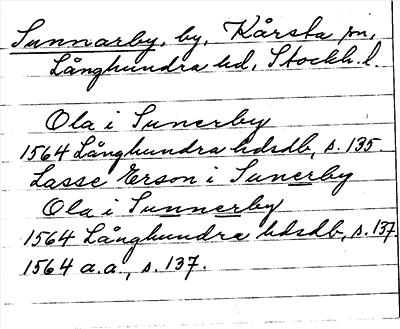 Sunnarby, by, Kårsta sn,
Långhundra hd, Stockh. l.
Ola i Sunerby
1564 Långhundra hdsdb, s. 135.
Lasse Erson i Sunerby
Ola i Sunnerby
1564 Långhundra hdsdb, s. 137.
1564 a.a., s. 137.